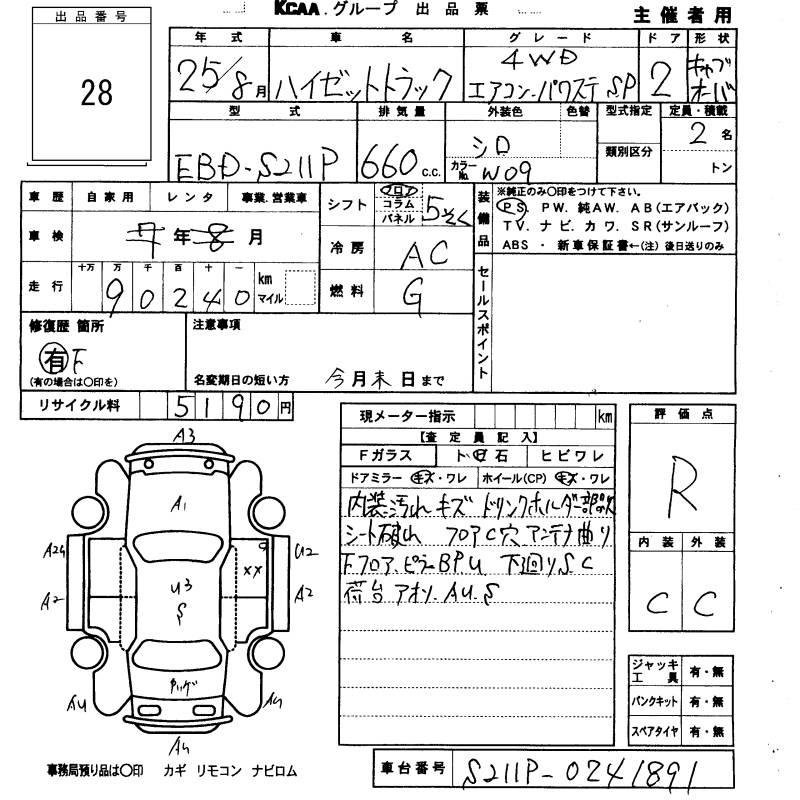 KCAA.グループ 出品票
主催者用
出品番号
28
年式 車名 グレード ドア 形状
25/8月 ハイゼットトラック 4WD エアコン・パワステ SP 2 キャブオーバ
型式 排気量 外装色 色替 型式指定 定員・積載
EBD-S211P 660 c.c. シロ カラーNo. W09 類別区分 2名
トン
車歴 自家用 レンタ 事業.営業車
車検 7年8月
走行 十万 万 千 百 十 一
90240 km マイル
シフト フロア コラム パネル 5そく
冷房 AC
燃料 G
装備品
※純正のみ〇印をつけて下さい。
PS. PW. 純AW. AB(エアバック)
TV. ナビ. カワ. SR(サンルーフ)
ABS ・ 新車保証書←(注) 後日送りのみ
セールスポイント
修復歴 箇所
有 F
(有の場合は〇印を)
注意事項
名変期日の短い方 今月末日まで
リサイクル料 5190円
現メーター指示 km
【査定員記入】
Fガラス ト 石 ヒビワレ
ドアミラー キズ・ワレ ホイール(CP) キズ・ワレ
内装汚れ キズ ドリンクホルダー部欠
シート破れ フロアC穴 アンテナ曲り
Fフロア.ピラーBPU 下廻りSC
荷台アオリ.AU.S
評価点
R
内装 外装
C C
A3
A1
A2
U2
A2
A2
××
U3
S
AU
A4
A4
ジャッキ工具 有・無
パンクキット 有・無
スペアタイヤ 有・無
事務局預り品は〇印 カギ リモコン ナビロム
車台番号 S211P-0241891